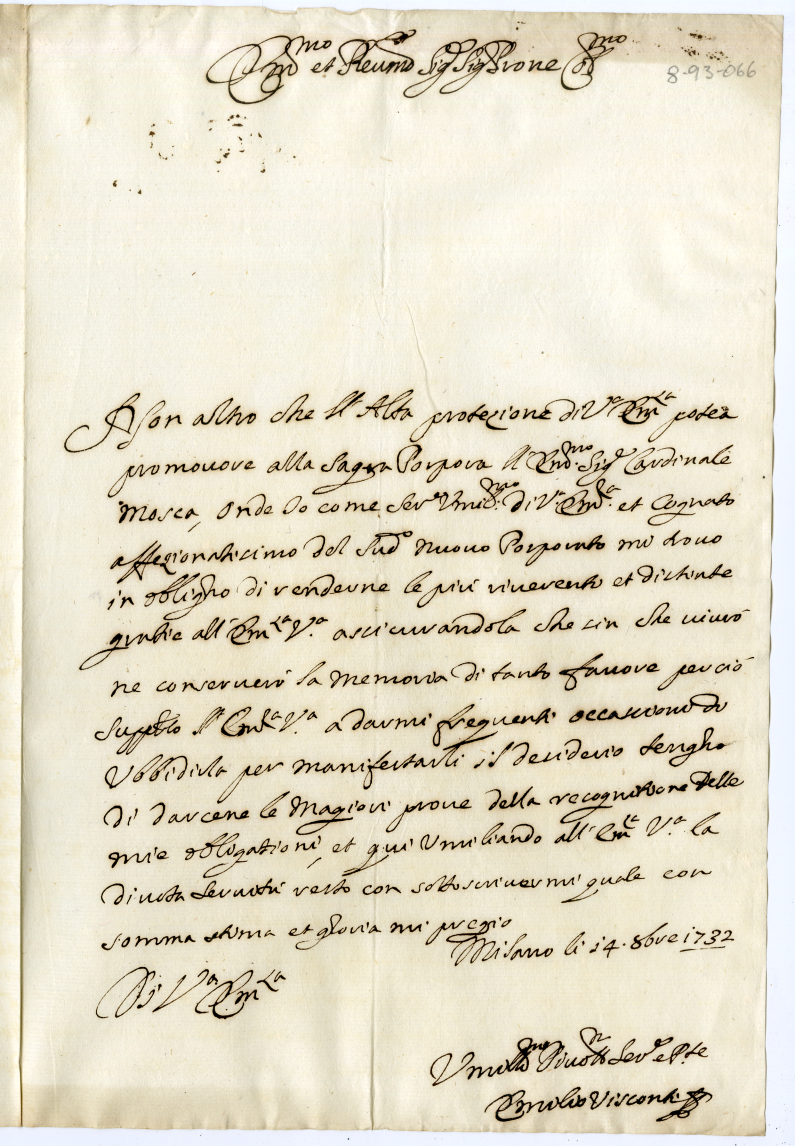 Em.mo et Reumo Sig Sig Prone Col.mo
8-93-066
Non altro che l'Alta protezione di V.a Em.za potea
promovore alla Sagra Porpora l'Em.mo Sig.r Cardinale
Mosca, onde Io come Ser.e Vmil.mo di V.a Em.za et Cognato
affezionatissimo del Sud.o nuovo Porporato mi trovo
in obligho di renderne le più riverenti et distinte
gratie all'Em.za V.a assicurandola che sin che viurò
ne conserverò la memoria di tanto favore perciò
Supplico l'Em.za V.a a darmi frequenti occassioni di
Vbbidirla per manifestarli il desiderio tengho
di darcene le Magiori prove della recognitione delle
mie obligationi, et qui Vmiliando all'Em.za V.a la
diuota servitù resto con sottoscrivermi quale con
somma stima et gloria mi pregio
Milano li 14. 8bre 1732
Di V.a Em.za
Vmill.mo Diuot.mo Ser.e e P.te
Emilio Visconti